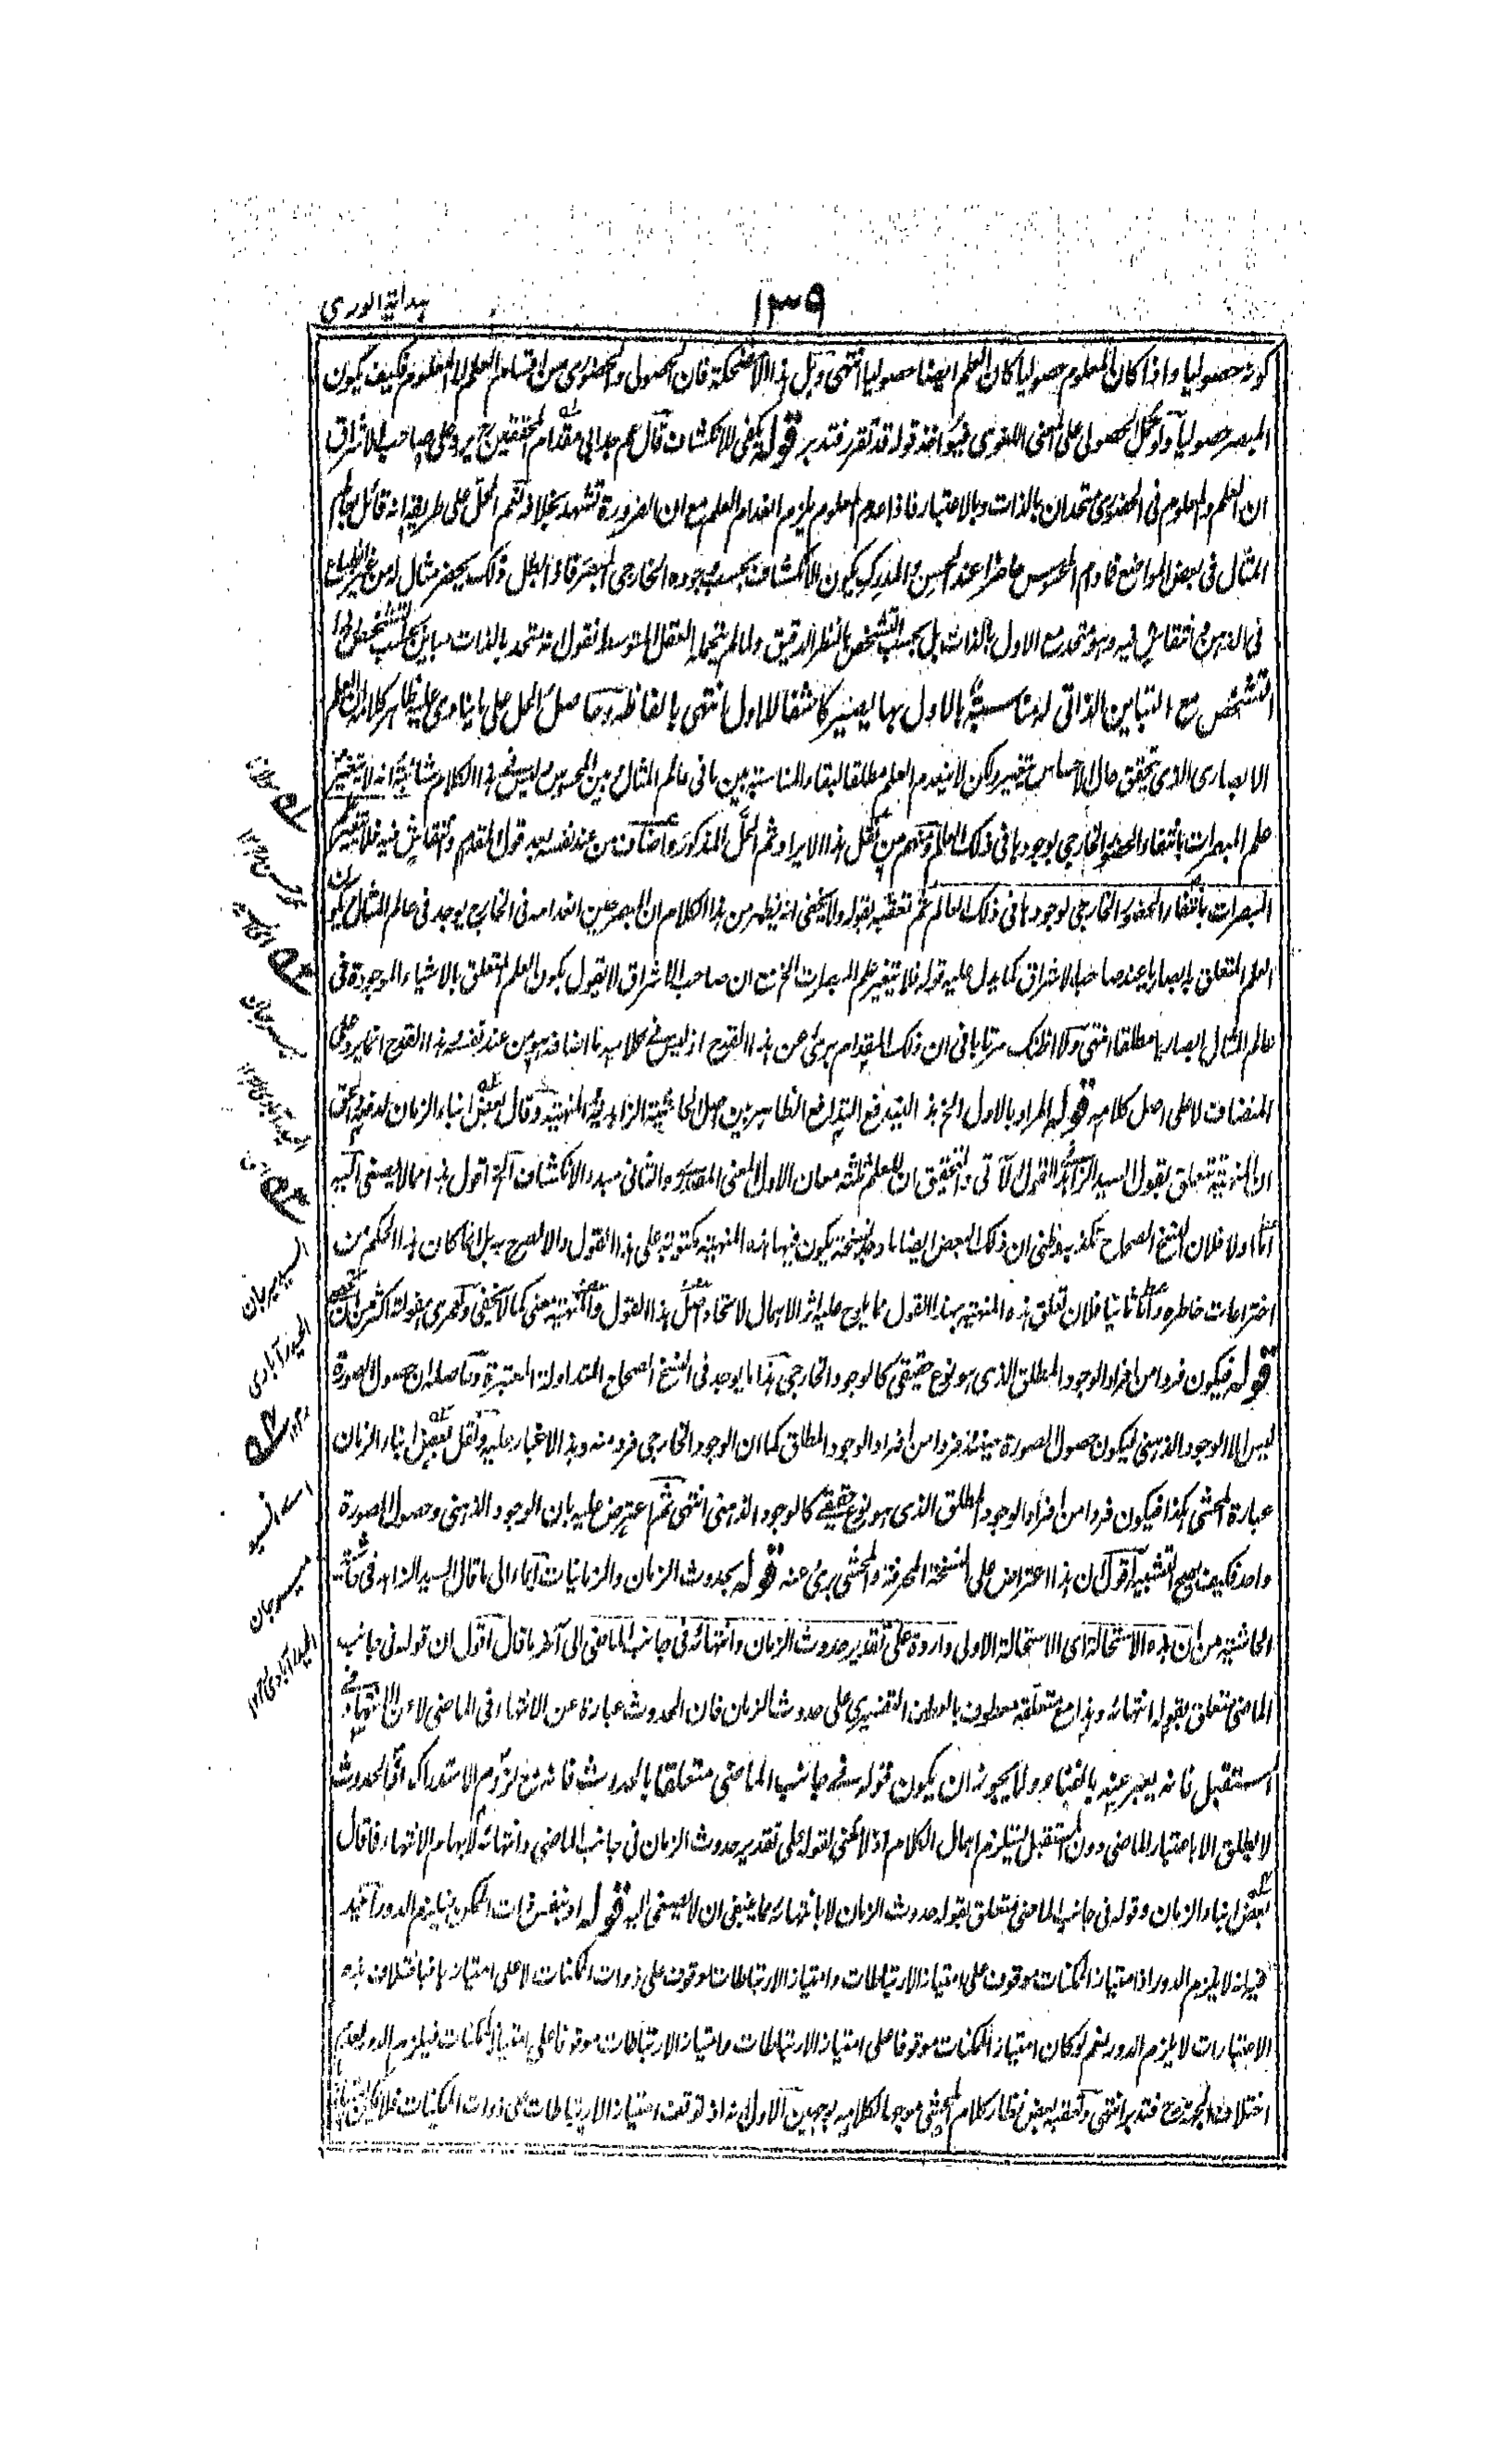 ١٣٩
هداية الورى
كونه حصوليا واذا كان المعلوم حصوليا كان العلم ايضا حصوليا انتهى وهل هذا الا اضحكة فان الحصولى والحضورى من اقسام العلم لا المعلوم فكيف يكون
المبصر حصوليا ولو حمل الحصولى على المعنى اللغوى فيواخذ قوله قد تقرر فتدبر قوله يكفى للانكشاف قال عم جد ابى مقدام المحققين يرد على صاحب الاشراق
ان العلم والمعلوم فى الحضورى متحدان بالذات وبالاعتبار فاذا عدم المعلوم يلزم انعدام العلم مع ان الضرورة تشهد بخلافه ثم الحل على طريقة انه قائل بعالم
المثال فى بعض المواضع فما دام المحسوس حاضرا عند الحس والمدرك يكون الانكشاف بحسب وجوده الخارجى المبصر فاذا بطل ذلك يحضر مثال له من غير انطباع
فى الذهن وانتقاش فيه وهو متحد مع الاول بالذات بل بحسب التشخص بالنظر الدقيق ولما لم يتحمله العقل المتوسط نقول انه متحد بالذات مباين بحسب التشخص
التشخص مع التباين الذاتى له مناسبة بالاول بها يصير كاشفا للاول انتهى بالفاظه وحاصل الحل على ما ينادى عليه ظاهر كلامه ان العلم
الابصارى الذى يتحقق حال الاحساس يتغير ولكن لا ينعدم العلم مطلقا لبقاء المناسبة بين ما فى عالم المثال وبين المحسوس وليس فى هذا الكلام شائبة انه لا يتغير
علم المبصرات بانتفاء الحضور الخارجى لوجودها فى ذلك العالم ومنهم من نقل هذا الايراد ثم الحل المذكور واضاف من عند نفسه بعد قول المقدام وانتقاش فيه فلا يتغير علم
المبصرات بانتفاء الحضور الخارجى لوجودها فى ذلك العالم ثم تعقبه بقوله ولا يخفى انه يظهر من هذا الكلام ان المبصر حين انعدامه فى الخارج يوجد فى عالم المثال فيكون
العلم المتعلق به ابصاريا عند صاحب الاشراق كما يدل عليه قوله فلا يتغير علم المبصرات الخ مع ان صاحب الاشراق لا يقول بكون العلم المتعلق بالاشياء الموجودة فى
عالم المثال ابصاريا مطلقا انتهى ولا اظنك مرتابا فى ان ذلك المقدام برئ عن هذا القدح اذ ليس فى كلامه ما اضافه هو من عند نفسه وهذا القدح انما يرد على
المضاف لا على اصل كلامه قوله المراد بالاول الخ بهذا القيد دفع التدافع الظاهر بين اصل الحاشية الزاهدية والمنهية وقال بعض ابناء الزمان
ان المنهية تتعلق بقول السيد الزاهد القول الآتى والتحقيق ان للعلم ثلثة معان الاول المعنى المصدرى والثانى مبدء الانكشاف الخ اقول هذا مما لا يصغى اليه
اما اولا فلان النسخ الصحاح تكذبه وظنى ان ذلك البعض ايضا ما وجد نسخة يكون فيها هذه المنهية مكتوبة على هذا القول والا لصرح به بل انما كان هذا الحكم من
اختراعات خاطره واما ثانيا فلان تعلق هذه المنهية بهذا القول مما يلوح عليه اثر الاهمال لاتحاد اصل هذا القول والمنهية معنى كما لا يخفى ولعمرى هفواته اكثر من ان تحصى
قوله فيكون فردا من افراد الوجود المطلق الذى هو نوع حقيقى كالوجود الخارجى هذا ما يوجد فى النسخ الصحاح المتداولة المعتبرة وحاصله ان حصول الصورة
ليس الا الوجود الذهنى فيكون حصول الصورة حينئذ فردا من افراد الوجود المطلق كما ان الوجود الخارجى فرد منه وهذا لا غبار عليه ونقل بعض ابناء الزمان
عبارة المحشى هكذا فيكون فردا من افراد الوجود المطلق الذى هو نوع حقيقى كالوجود الذهنى انتهى ثم اعترض عليه بان الوجود الذهنى وحصول الصورة
واحد فكيف يصح التشبيه اقول ان هذا اعتراض على النسخة المحرفة والمحشى برئ عنه قوله بحدوث الزمان والزمانيات ايماء الى ما قال السيد الزاهد فى
الحاشية من ان هذه الاستحالة اى الاستحالة الاولى واردة على تقدير حدوث الزمان وانتهائه فى جانب الماضى الى آخر ما قال اقول ان قوله فى جانب
الماضى متعلق بقوله انتهائه وهذا مع متعلقه معطوف بالعطف التفسيرى على حدوث الزمان فان الحدوث عبارة عن الانتهاء فى الماضى لا عن الانتهاء فى
المستقبل فانه يعبر عنه بالفناء ولا يجوز ان يكون قوله فى جانب الماضى متعلقا بالحدوث فانه مع لزوم الاستدراك اذ الحدوث
لا يطلق الا باعتبار الماضى دون المستقبل يستلزم اهمال الكلام اذ لا معنى لقوله على تقدير حدوث الزمان فى جانب الماضى وانتهائه لابهام الانتهاء فما قال
بعض ابناء الزمان وقوله فى جانب الماضى متعلق بقوله حدوث الزمان لا بانتهائه مما ينبغى ان لا يصغى اليه قوله او بنفس ذات الممكن فيلزم الدور
فيه انه لا يلزم الدور اذ امتياز الممكنات موقوف على امتياز الارتباطات وامتياز الارتباطات موقوف على ذوات الممكنات لا على امتيازها فباختلاف هذه
الاعتبارات لا يلزم الدور نعم لو كان امتياز الممكنات موقوفا على امتياز الارتباطات وامتياز الارتباطات موقوفا على امتياز الممكنات فيلزم الدور لعدم
اختلاف الجهة فتدبر انتهى وتعقبه بعض نظار كلام المحشى موجها لكلامه بوجهين الاول انه اذ توقف امتياز الارتباطات على ذوات الممكنات
السيد ميرجان
الحيدرآبادى